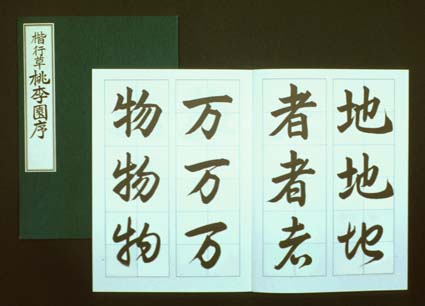 楷行草桃李園序
地地地
者者者
万万万
物物物